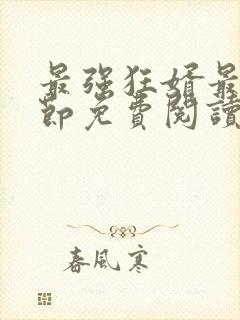 最强狂婿最
節免費閱讀
春風寒